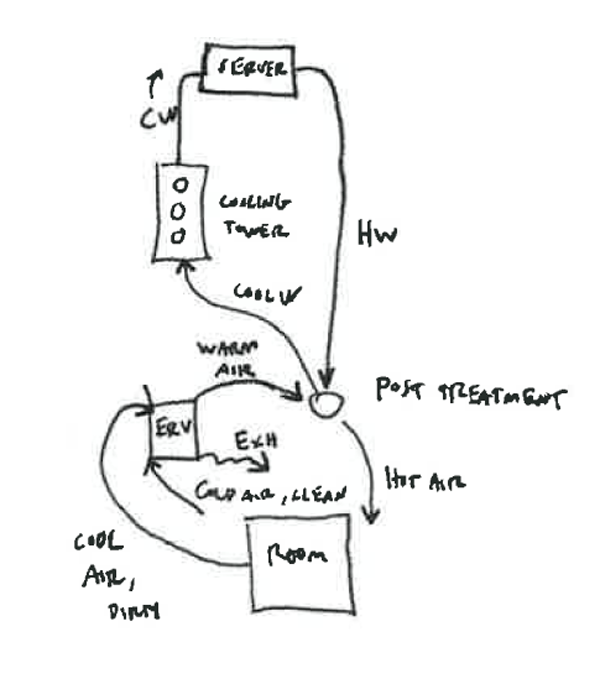 SERVER
CW
COOLING
TOWER
HW
COOL W
WARM
AIR
POST TREATMENT
ERV
EXH
HOT AIR
COLD AIR, CLEAN
ROOM
COOL
AIR,
DIRTY